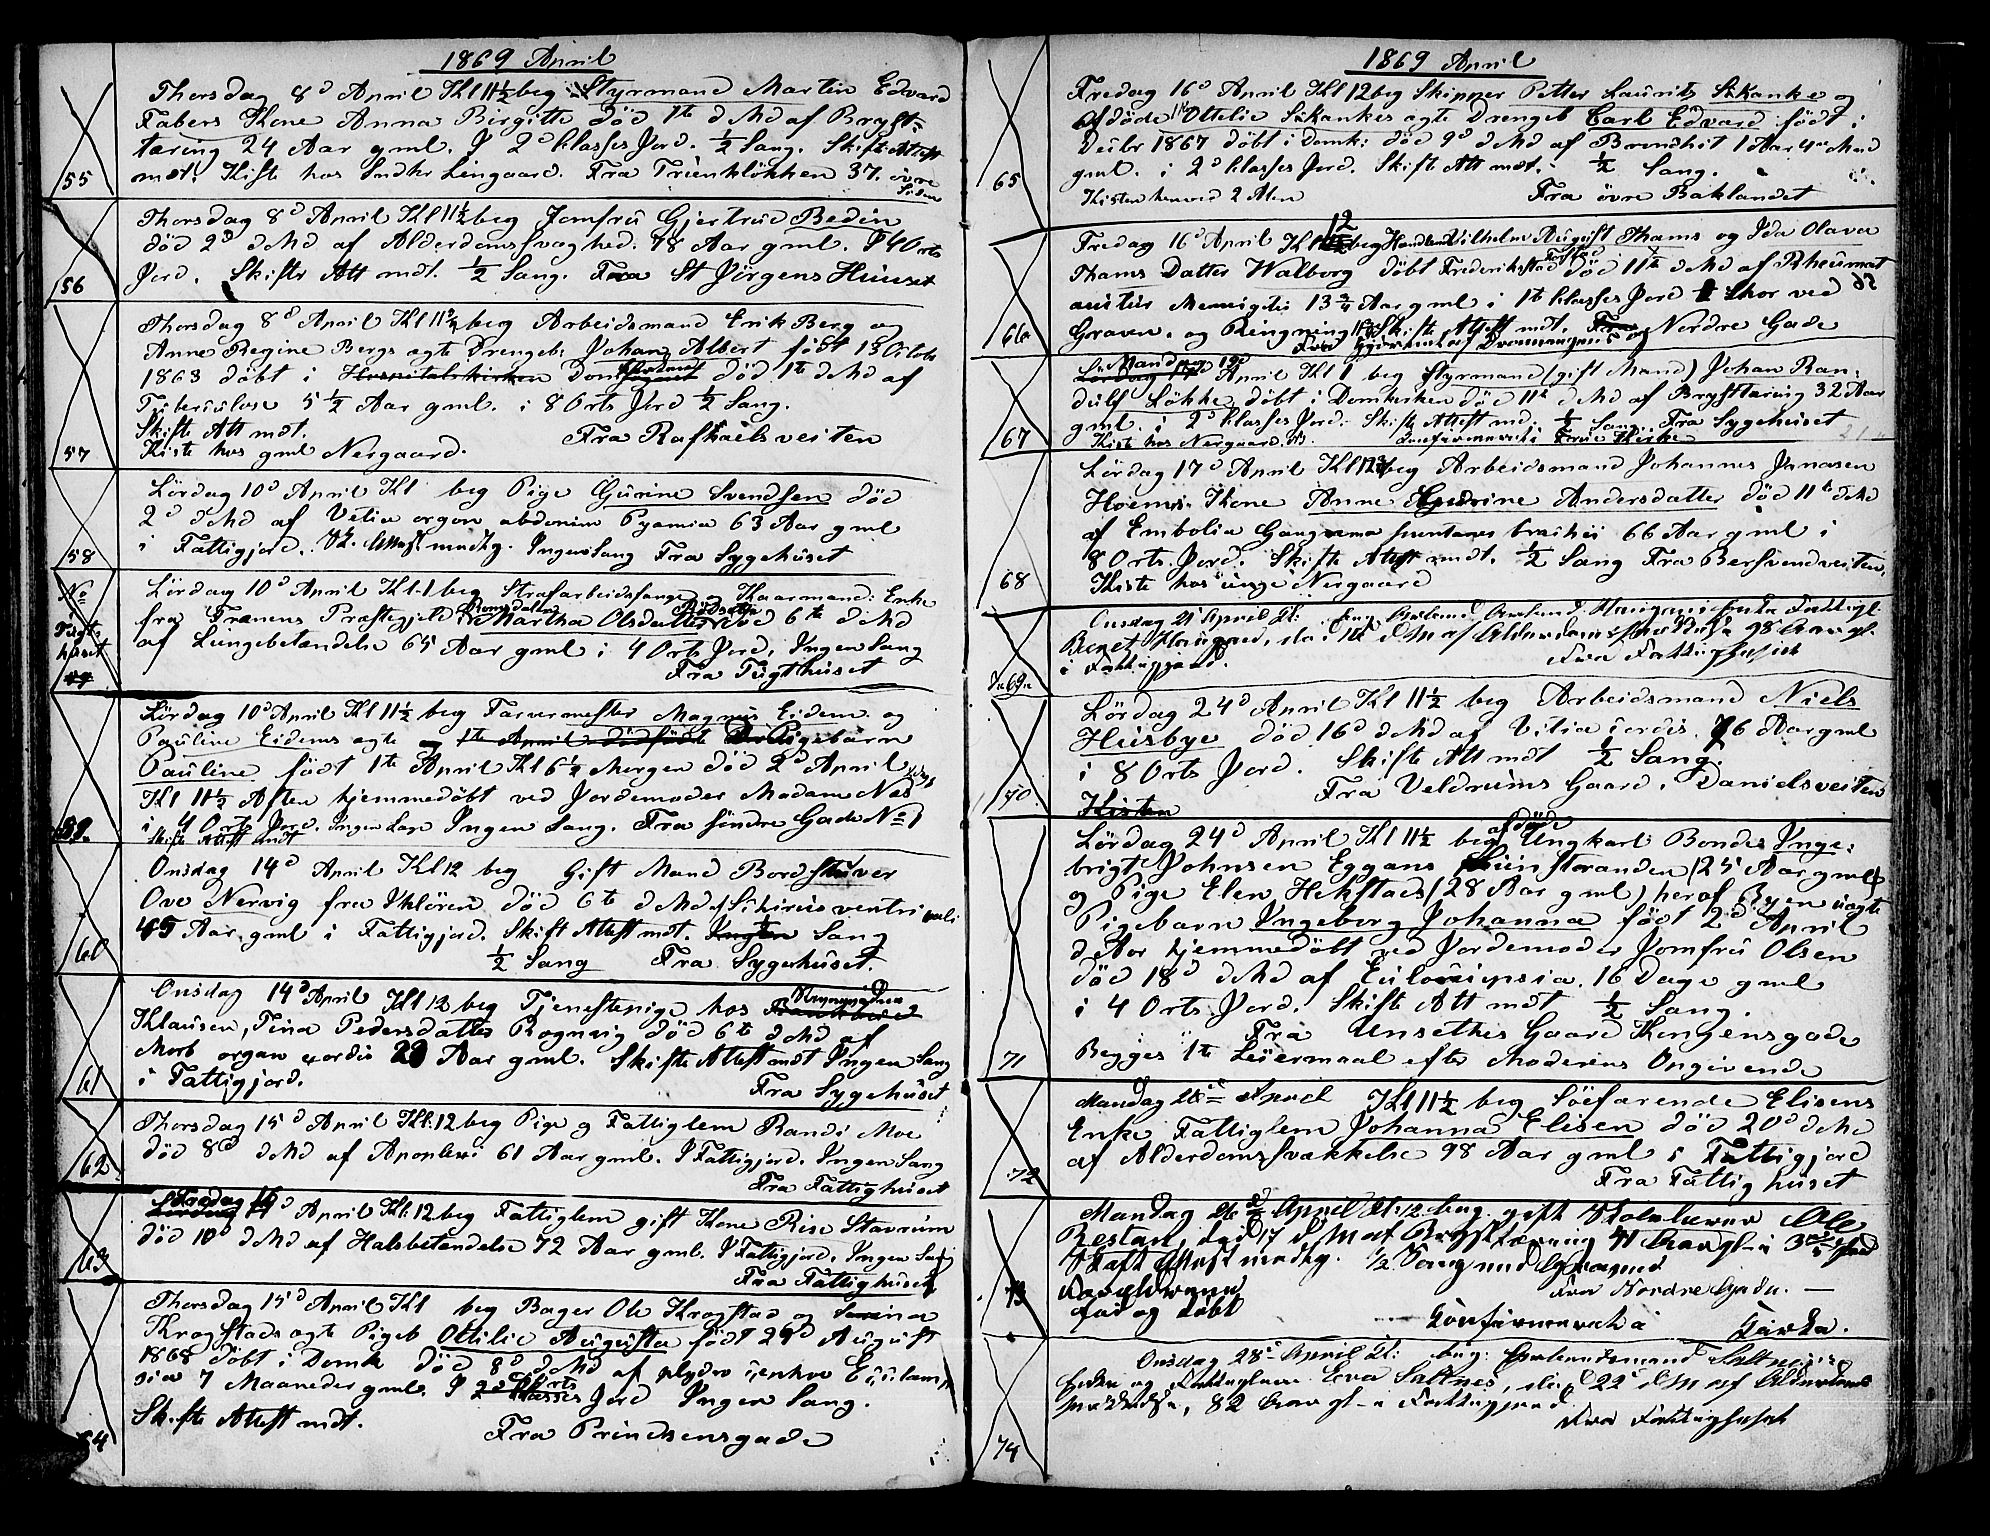 1869 April
Thorsdag 8d April Kl 11½ beg Styrmand Martin Edvard
Fabers Kone Anna Birgitte død 1te dMd af Bryst-
tæring 24 Aar gml. I 2d klasses Jord. ½ Sang. Skifte Attest
55 mdt. Kiste hos Snedkr Lingaard. Fra Trienkløkken 37. øvre
Siden
Thorsdag 8d April Kl 11½ beg Jomfru Gjertrud Bedin
død 2d dMd af Alderdomssvaghed. 78 Aar gml. I 4 Orts
56 Jord. Skifte Att mdt. ½ Sang. Fra St Jörgens Huuset
Thorsdag 8d April Kl 11¾ beg Arbeidsmand Erik Berg og
Anne Regine Bergs ægte Drengeb: Johan Albert født 13 Octobr
1863 døbt i Hospitalskirken Dom død 1te dMd af
Tuberculose 5½ Aar gml. i 8 Orts Jord ½ Sang.
Skifte Att mdt. Fra Rafhaelsveiten
57 Kiste hos gml Nergaard.
Lørdag 10d April Kl beg Pige Gurine Svendsen død
2d dMd af Vitia organ abdomin Pyæmia 63 Aar gml
58 i Fattigjord. Sk. Attest mndtg. Ingen Sang Fra Sygehuset
No Lørdag 10d April Kl 1 beg Strafarbeidsfange og Kaarmand: Enke
fra Tranens Præstegjeld Romsdalen Martha Olsdatter Rødsæth død 6te dMd
Tugt-
huset af Lungebetændelse 65 Aar gml i 4 Orts Jord, Ingen Sang
Fra Tugthuset
Lørdag 10d April Kl 11½ beg Farvermester Magnus Eidem og
Pauline Eidems ægte og 1te April dødfødte Pigebarn
Pauline født 1te April Kl 6½ Morgen død 2d April
Kl 11½ Aften hjemmedøbt ved Jordemoder Madam Næs
i 4 Orts Jord. Ingen Sang. Fra søndre Gade No 1
59. Skifte Attest mdt
Onsdag 14d April Kl 12 beg Gift Mand Bordstuver
Ove Nervig fra Ihlören død 6te dMd af Schirus ventriculi
45 Aar gml i Fattigjord. Skift Attest mdt. Ingen Sang
60 ½ Sang Fra Sygehuset.
Onsdag 14d April Kl 12 beg Tjenestepige hos
Klausen, Tina Pedersdatter Rognvig død 6te dMd af
Morb organ cordis 29 Aar gml. Skifte Attest mdt Ingen Sang
61 i Fattigjord. Fra Sygehuset
Thorsdag 15d April Kl: 12 beg Pige og Fattiglem Randi Moe
død 8d dMd af Apoplexi 61 Aar gml. I Fattigjord. Ingen Sang
62 Fra Fattighuset
Fredag 16 April Kl: 12 beg Fattiglem gift Kone Rise Stavrum
død 10d dMd af Halsbetændelse 72 Aar gml. I Fattigjord. Ingen Sang
63 Fra Fattighuset
Thorsdag 15d April Kl beg Bager Ole Krogstad og
Krogstads ægte Pigeb Ottilie Augusta født 29d August
1868 døbt i Domk død 8d dMd af
sia 7 Maaneder gml. I 2d Klasses Orts Jord Ingen Sang.
Skifte Attest mdt.
64 Fra Prindsensgade
1869 April
Fredag 16d April Kl 12 beg Skipper Petter Laurits Skanke og
afdøde Ottelie Skankes ægte Drengeb Carl Edvard født i
Decbr 1867 døbt i Domk: død 9d dMd af Brændhit 1 Aar 4 Mnd
65 gml. i 2d klasses Jord. Skifte Att mdt. ½ Sang.
Kisten henved 2 Alen Fra øvre Baklandet
Fredag 16d April Kl 12 beg Handlend Vilhelm August Thams og Ida Olava
Thams Datter Walborg døbt Frederikstad død 11te dMd af Rheumat
acutus Meningitis 13¾ Aar gml i 1te klasses Jord Chor ved
66 Graven. og Ringning Skifte Attest mdt. Fra Nordre Gade
Mandag 19d April Kl 1 beg Styrmand (gift Mand) Johan Ran-
dulf Løkke døbt i Domkirken død 11te dMd af Brysttæring 32 Aar
67 gml. i 2d klasses Jord. Skifte Attest mdt. ½ Sang. Fra Sygehuset
Kiste hos Nergaard. Confirmeret i Frue Kirke
Lørdag 17d April Kl 12½ beg Arbeidsmand Johannes Jonasen
Hoems Kone Anne Andersdatter død 11te dMd
af Embolia Gangræna spontanea brachii 66 Aar gml i
8 Orts. Jord. Skifte Attest mdt. ½ Sang Fra Bersvendveiten,
68 Kiste hos unge Nergaard
Onsdag 21 April Kl: Enke Fattigl.
Beret Haugan, død 14d dM af Alderdomssvækkelse 98 Aar gl.
69 i Fattigjord. Fra Fattighuset
Lørdag 24d April Kl 11½ beg Arbeidsmand Niels
Husbye død 16d dMd af Vitia cordis. 76 Aar gml
i 8 Orts Jord. Skifte Att mdt ½ Sang.
70. Kisten Fra Veldrums Gaard. Danielsveiten
Lørdag 24d April Kl 11½ beg afdøde Ungkarl Bondes Inge-
brigt Johnsen Eggans Stranden (25 Aar gml)
og Pige Elen Hekstads (28 Aar gml) heraf Byen uægte
Pigebarn Ingeborg Johanna født 2d April
d Aar hjemmedøbt ved Jordemoder Jomfru Olsen
død 18d dMd af Eclampsia. 16 Dage gml
i 4 Orts Jord. Skifte Att mdt ½ Sang.
Fra Unsethes Gaard Kongensgade
71 Begges 1te Leiermaal efter Moderens Opgivende
Mandag 26d April Kl 11½ beg Søefarende Elisens
Enke Fattiglem Johanna Elisen død 20d dMd
af Alderdomssvækkelse 98 Aar gml i Fattigjord
72 Fra Fattighuset
Mandag 26d April Kl: 12 beg. gift Skolelærer Ole
Restan, død 17 d M af Brysttæring 41 Aar gl i 3de Jord
Skift Attest mndtg. ½ Sang ved Graven
73 Fra Nordre Gade. —
født og døbt Confirmeret i Kirke.
Onsdag 28d April Kl: beg: Saltnes
Enke og Fattiglem Eva Saltnes, død 22d d M af Alderdoms
svækkelse, 82 Aar gl i Fattigjord
74 Fra Fattighuset